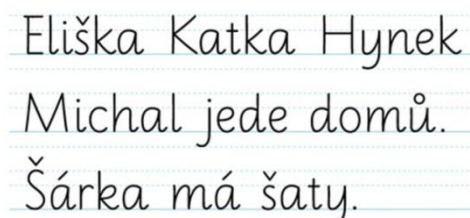 Eliška Katka Hynek
Michal jede domů.
Šárka má šaty.